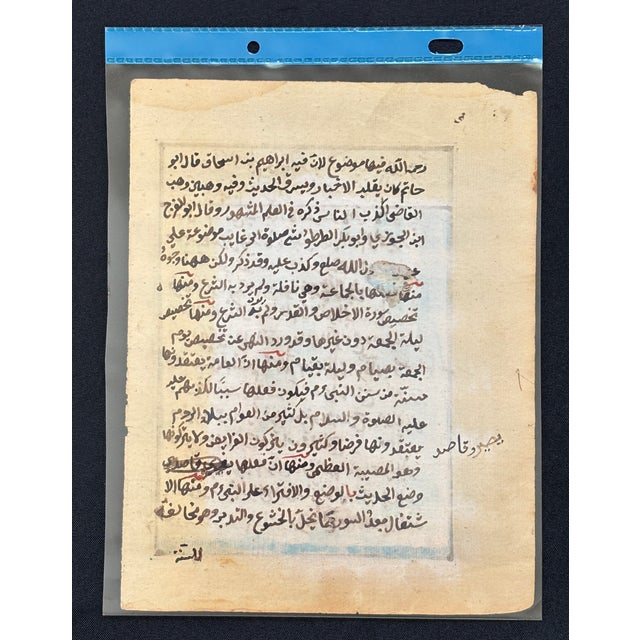 رحمه الله فيها موضوع لان فيه ابراهيم بن اسحاق قال ابو
حاتم كان يقلب الاخبار ويسرق الحديث وفيه وهب بن وهب
القاضى اكذب الناس ذكره فى العلم المشهور وقال ابو الفرج
ابن الجوزي وابو بكر الطرطوشى صلوة الرغايب موضوعة على
رسول الله صلع وكذب عليه وقد ذكر ولكن ههنا وجوه
منها فعلها بالجماعة وهى نافلة ولم يرد به الشرع ومنها
تخصيص سورة الاخلاص والقدر ولم يرد الشرع ومنها تخصيص
ليلة الجمعة دون غيرها وقد ورد النهى عن تخصيص يوم
الجمعة بصيام وليلة بقيام ومنها ان العامة يعتقدونها
سنة من سنن النبى فيكون فعلها سببا لكذبهم عليه
عليه الصلوة والسلام بل كثير من العوام ببلاد الروم
يعتقدونها فرضا وكثيرون يتركون الفرايض ولا يتركونها
وهو المصيبة العظمى ومنها ان فعلها يغرى قاصدى
وضع الحديث بالوضع والافتراء على النبى ومنها الا
شتغال بعد السور مما يخل بالخشوع والتدبر وهو مخالفة
للسنة
يصير قاصد